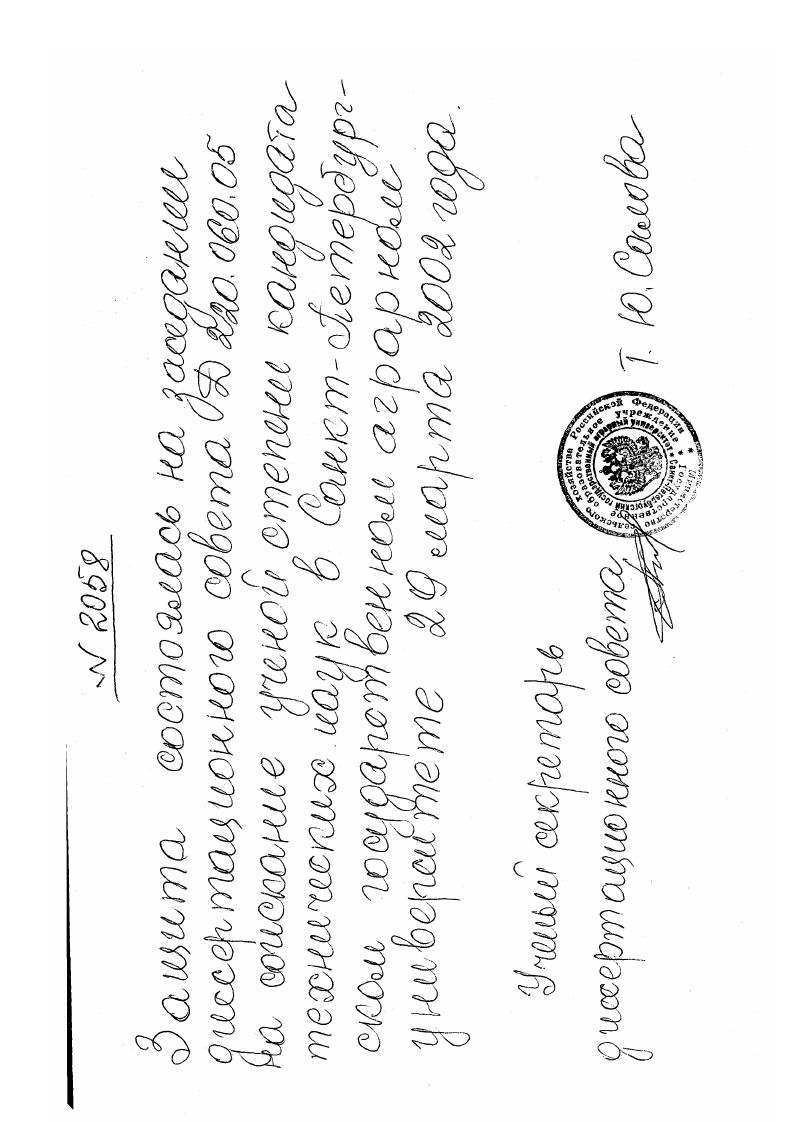 N 2058
Защита состоялась на заседании
диссертационного совета Д 220.060.05
на соискание ученой степени кандидата
технических наук в Санкт-Петербург-
ском государственном аграрном
университете 29 марта 2002 года.
Ученый секретарь
диссертационного совета Т. Ю. Салова
Министерство сельского хозяйства Российской Федерации
Государственное образовательное учреждение
Санкт-Петербургский государственный аграрный университет